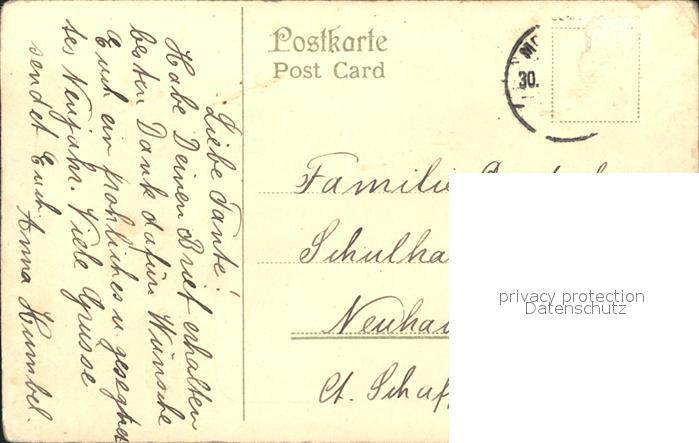 Postkarte
Post Card
MO
30.
Liebe Tante!
Habe Deinen Brief erhalten
besten Dank dafür. Wünsche
Euch ein fröhliches u. gesegne
tes Neujahr. Viele Grüsse
sendet Euch Anna Humbel.
Familie
Schulha
Neuhau
Ct. Schaff
privacy protection
Datenschutz